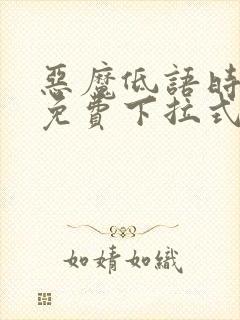 惡魔低語時
免費下拉式
如婧如織